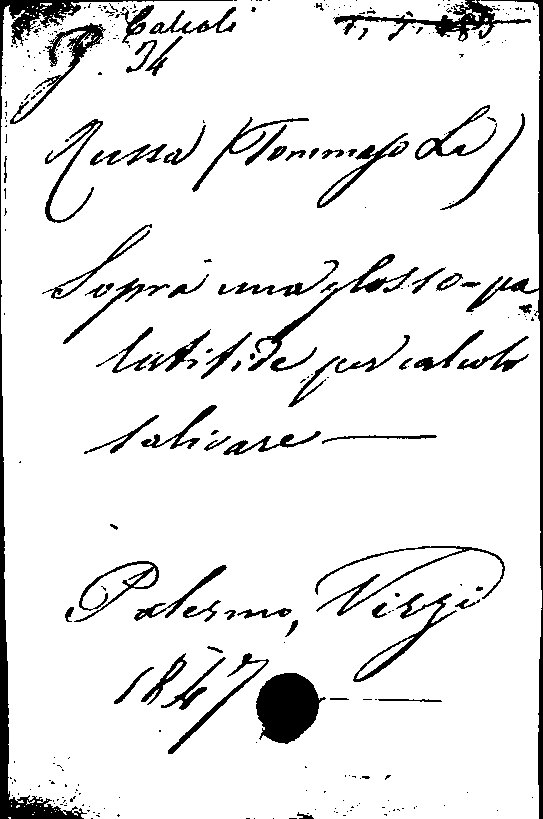 Calcoli
J. 34
Russa (Tommaso La)
Sopra una glosso-pa
latitide per calcolo
salivare —
Palermo, Virzi
1847 —